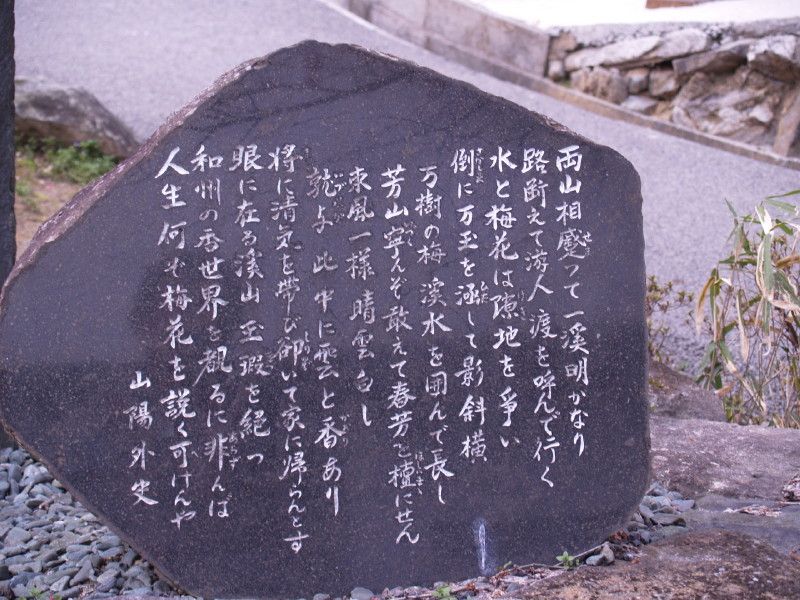 両山相蹙って一溪明かなり
路断えて游人渡を呼んで行く
水と梅花は隙地を爭い
倒に万玉を涵して影斜横
万樹の梅溪水を囲んで長し
芳山寧んぞ敢えて春芳を擅にせん
東風一様晴雲白し
就よ此中に雲と香あり
将に清気を帯び卻いて家に帰らんとす
眼に在る溪山玉瑕を絶つ
和州の香世界を観るに非んば
人生何ぞ梅花を説く可けんや
山陽外史